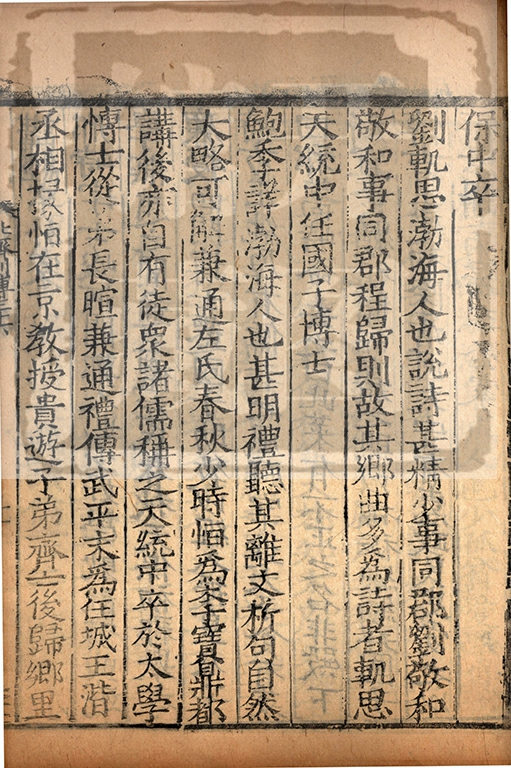 保中卒
劉軌思渤海人也說詩甚精少事同郡劉敬和
敬和事同郡程歸則故其鄉曲多為詩者軌思
天統中任國子博士
鮑季詳渤海人也甚明禮聽其離文析句自然
大略可解兼通左氏春秋少時恒為李寶鼎都
講後亦自有徒衆諸儒稱之天統中卒於太學
博士從弟長暄兼通禮傳武平末為任城王湝
丞相掾恒在京教授貴遊子弟齊亡後歸鄉里